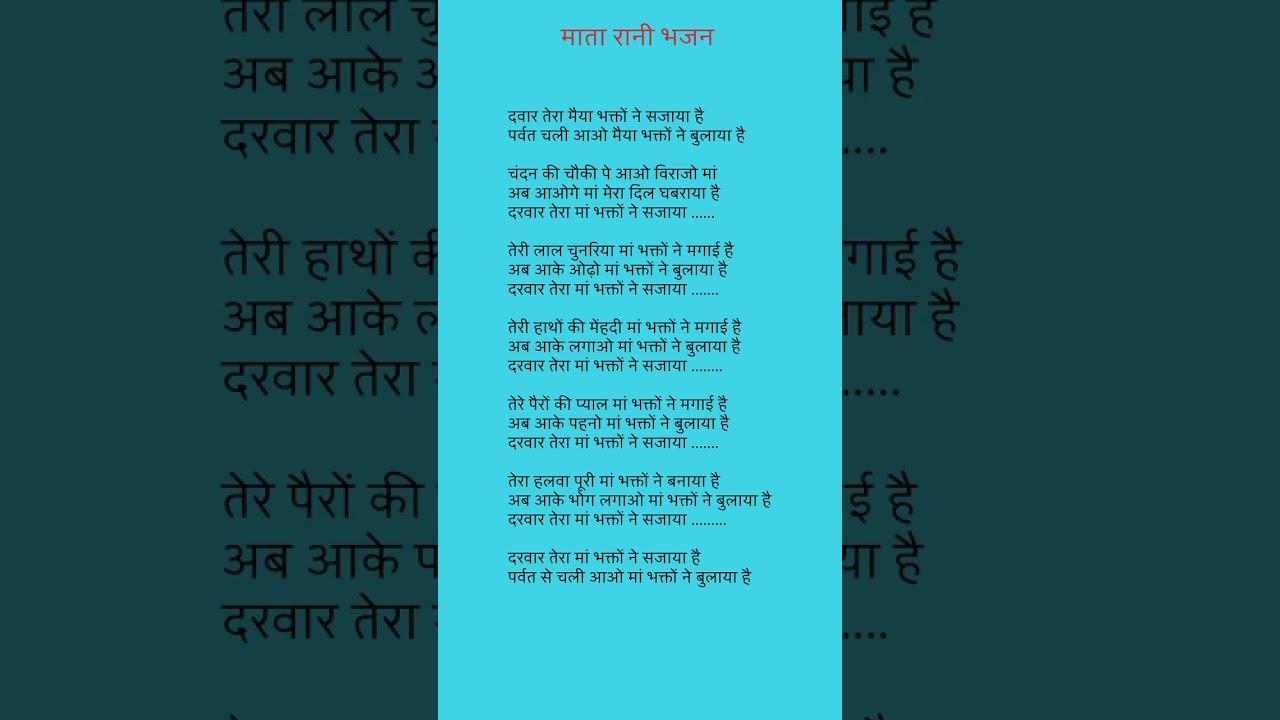 माता रानी भजन
दवार तेरा मैया भक्तों ने सजाया है
पर्वत चली आओ मैया भक्तों ने बुलाया है
चंदन की चौकी पे आओ विराजो मां
अब आओगे मां मेरा दिल घबराया है
दरवार तेरा मां भक्तों ने सजाया ......
तेरी लाल चुनरिया मां भक्तों ने मगाई है
अब आके ओढ़ो मां भक्तों ने बुलाया है
दरवार तेरा मां भक्तों ने सजाया .......
तेरी हाथों की मेंहदी मां भक्तों ने मगाई है
अब आके लगाओ मां भक्तों ने बुलाया है
दरवार तेरा मां भक्तों ने सजाया ........
तेरे पैरों की प्याल मां भक्तों ने मगाई है
अब आके पहनो मां भक्तों ने बुलाया है
दरवार तेरा मां भक्तों ने सजाया .......
तेरा हलवा पूरी मां भक्तों ने बनाया है
अब आके भोग लगाओ मां भक्तों ने बुलाया है
दरवार तेरा मां भक्तों ने सजाया .........
दरवार तेरा मां भक्तों ने सजाया है
पर्वत से चली आओ मां भक्तों ने बुलाया है